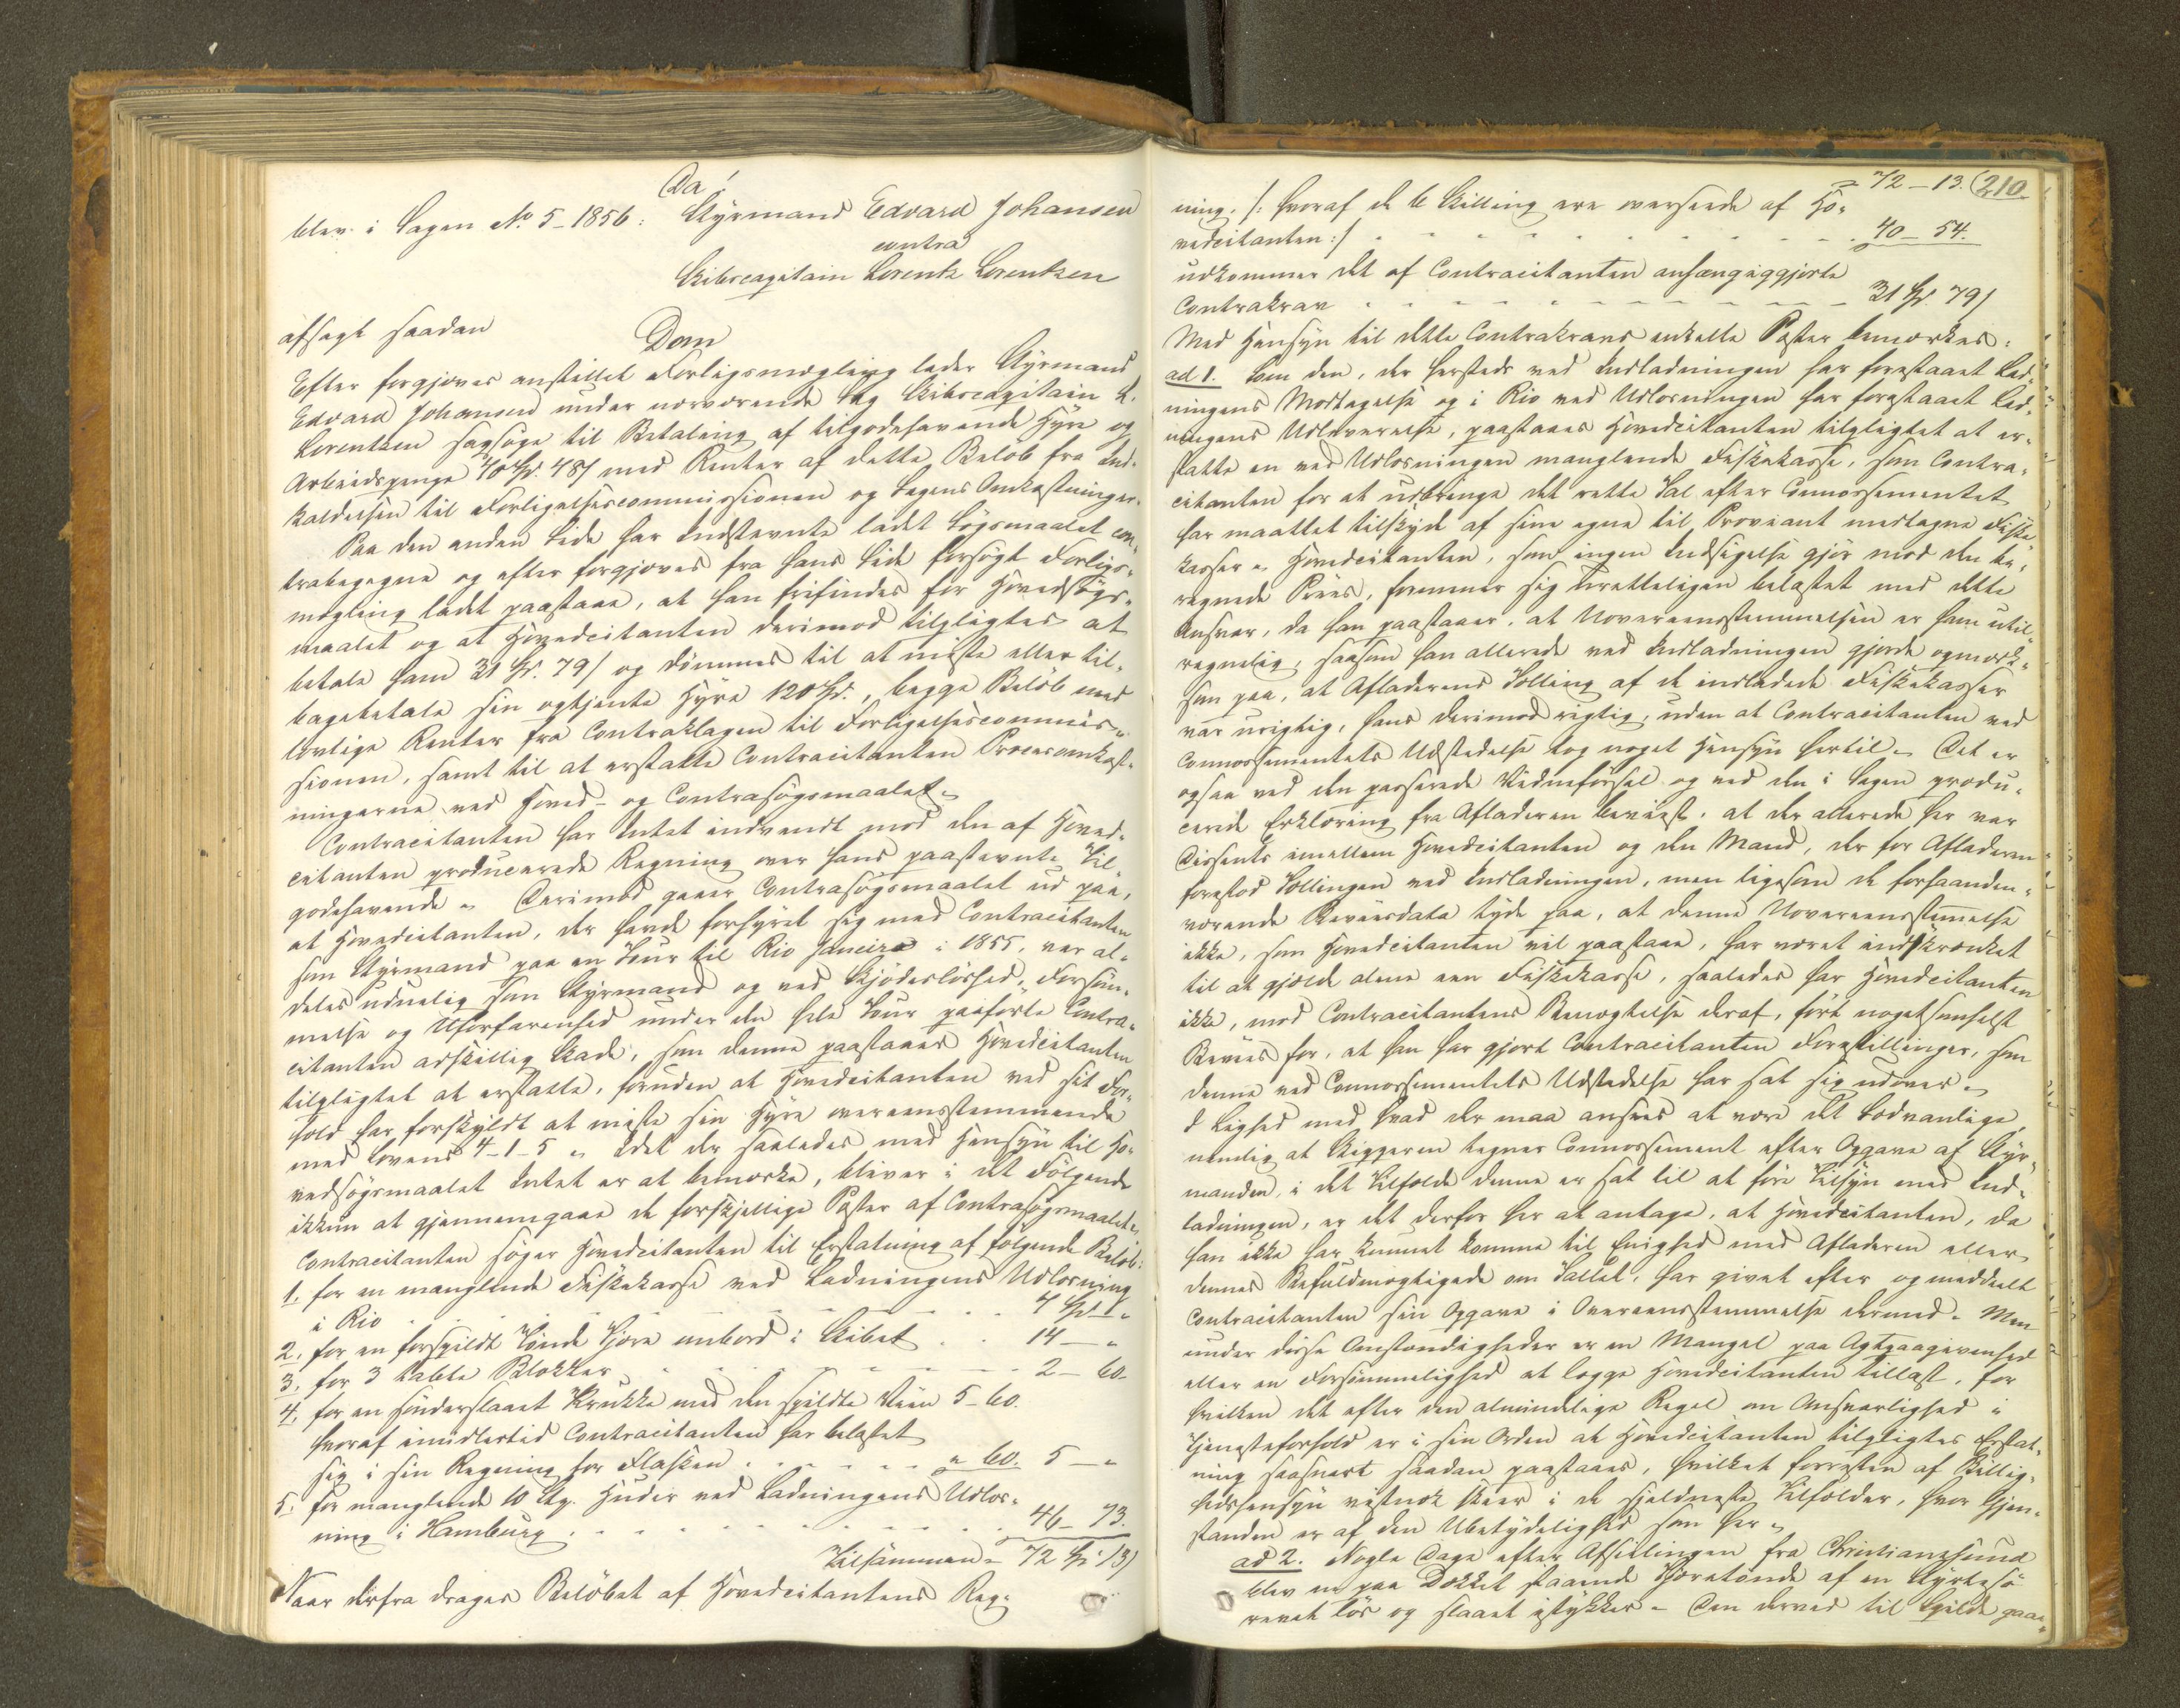 Da!
blev i Sagen No 5-1856: Styrmand Edvard Johansen
contra
Skibscapitain Lorentz Lorentzen
afsagt saadan
Dom
Efter forgjæves anstillet Forligsmægling lader Styrmand
Edvard Johansen under nærværende Sag Skibscapitain L.
Lorentzen sagsøge til Betaling af tilgodehavende Hyre og
Arbeidspenge 40 Spd. 48 s med Renter af dette Beløb fra Ind-
kaldelsen til Forligelsescommissionen og Sagens Omkostninger.
Paa den anden Side har Indstevnte ladet Søgsmaalet con-
trabegegne og efter forgjæves fra hans Side forsøgt Forligs-
mægling ladet paastaae, at han frifindes for Hovedsøgs-
maalet og at Hovedcitanten derimod tilpligtes at
betale ham 31 Spd. 79 s og dømmes til at miste eller til-
bagebetale sin optjente Hyre 120 Spd., begge Beløb med
lovlige Renter fra Contraklagen til Forligelsescommis-
sionen, samt til at erstatte Contracitanten Procesomkost-
ningerne ved Hoved- og Contrasøgsmaalet.
Contracitanten har Intet indvendt mod den af Hoved-
citanten producerede Regning over hans paastevnte Til-
godehavende. Derimod gaaer Contrasøgsmaalet ud paa,
at Hovedcitanten, der havde forhyret sig med Contracitanten
som Styrmand paa en Tour til Rio Janeiro i 1855, var al-
deles uduelig som Styrmand og ved Skjødesløshed, Forsøm-
melse og Uforfarenhed under den hele Tour paaførte Contra-
citanten adskillig Skade, som denne paastaaer Hovedcitanten
tilpligtet at erstatte, foruden at Hovedcitanten ved sit For-
hold har forskyldt at miste sin Hyre overeensstemmende
med Lovens 4-1-5. Idet der saaledes med Hensyn til Ho-
vedsøgsmaalet Intet er at bemærke, bliver i det Følgende
ikkun at gjennemgaae de forskjellige Poster af Contrasøgsmaalet.
Contracitanten søger Hovedcitanten til Erstatning af følgende Beløb:
1, for en manglende Fiskekasse ved Ladningens Udlosning
i Rio . . . 4 Spd "
2, for en forspildt Tønde Tjære ombord i Skibet . . 14 — "
3, for 3 tabte Blokker . . . 2 — 60.
4, for en sønderslaaet Krukke med den spildte Viin 5 - 60.
hvoraf imidlertid Contracitanten har belastet
sig i sin Regning for Flasken . . . " 60. 5 — "
5. for manglende 10 Stkr. Huder ved Ladningens Udlos-
ning i Hamburg . . . 46 - 73.
Tilsammen = 72 Spd 13 s
Naar derfra drages Beløbet af Hovedcitantens Reg-
= 72 - 13. 210
ning. /: hvoraf de 6 Skilling ere overseede af Ho-
vedcitanten :/ . . . 40 - 54.
udkommer det af Contracitanten anhængiggjorte
Contrakrav . . . 31 Spd. 79 s
Med Hensyn til dette Contrakravs enkelte Poster bemærkes:
ad 1. Som den, der hersteds ved Indladningen har forestaaet Lad-
ningens Modtagelse og i Rio ved Udlosningen har forestaaet Lad-
ningens Udleverelse, paastaaes Hovedcitanten tilpligtet at er-
statte en ved Udlosningen manglende Fiskekasse, som Contra-
citanten for at udbringe det rette Tal efter Connossementet
har maattet tilskyde af sine egne til Proviant medtagne Fiske-
kasser. Hovedcitanten, som ingen Indsigelse gjør mod den be-
regnede Priis, formener sig uretteligen belastet med dette
Ansvar, da han paastaaer, at Uovereensstemmelsen er ham util-
regnelig, saasom han allerede ved Indladningen gjorde opmærk-
som paa, at Afladerens Tælling af de indladede Fiskekasser
var urigtig, hans derimod rigtig, uden at Contracitanten ved
Connossementets Udstedelse tog noget Hensyn hertil. Det er
ogsaa ved den passerede Vidneførsel og ved den i Sagen produ-
cerede Erklæring fra Afladeren beviist, at der allerede her var
Dissents imellem Hovedcitanten og den Mand, der for Afladeren
forestod Tællingen ved Indladningen, men ligesom de forhaanden-
værende Beviisdata tyde paa, at denne Uovereensstemmelse
ikke, som Hovedcitanten vil paastaae, har været indskrænket
til at gjælde alene een Fiskekasse, saaledes har Hovedcitanten
ikke, mod Contracitantens Benægtelse deraf, ført nogetsomhelst
Beviis for, at han har gjort Contracitanten Forestillinger, som
denne ved Connossementets Udstedelse har sat sig udover.
I Lighed med hvad der maa ansees at være det Sædvanlige,
nemlig at Skipperen tegner Connossement efter Opgave af Styr-
manden, i det Tilfælde denne er sat til at føre Tilsyn med Ind-
ladningen, er det derfor her at antage, at Hovedcitanten, da
han ikke har kunnet komme til Enighed med Afladeren eller
dennes Befuldmægtigede om Tallet, har givet efter og meddeelt
Contracitanten sin Opgave i Overeensstemmelse dermed. Men
under disse Omstændigheder er en Mangel paa Agtpaagivenhed
eller en Forsømmelighed at lægge Hovedcitanten tillast, for
hvilken det efter den almindelige Regel om Ansvarlighed i
Tjenesteforhold er i sin Orden at Hovedcitanten tilpligtes Erstat-
ning saasnart saadan paastaaes, hvilket forresten af Billig-
hedshensyn vistnok skeer i de sjeldneste Tilfælder, hvor Gjen-
standen er af den Ubetydelighed som her.
ad 2. Nogle Dage efter Afseilingen fra Christianssund
blev en paa Dækket staaende Tjæretønde af en Styrtesø
revet løs og slaaet istykker. Den derved til Spilde gaae-